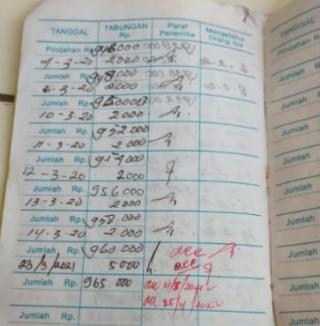 TANGGAL TABUNGAN Rp Paraf Penerima Mengetahui Orang tua
Pindahan Rp 946000
4-3-20 2000
Jumlah Rp 948000
6-3-20 2000
Jumlah Rp 950000
10-3-20 2.000
Jumlah Rp. 952.000
11-3-20 2000
Jumlah Rp. 954000
12-3-20 2000
Jumlah Rp. 956.000
13-3-20 2000
Jumlah Rp. 958.000
14-3-20 2.000
Jumlah Rp. 960.000
23/3/2021 5000
acc
acc
Jumlah Rp. 965.000
Jumlah Rp.
TANGGAL
Pindahan R
Jumlah
Jumlah
Jumlah
Jumlah
Jumlah
Jumlah
Jumlah
Jumlah
Jumlah